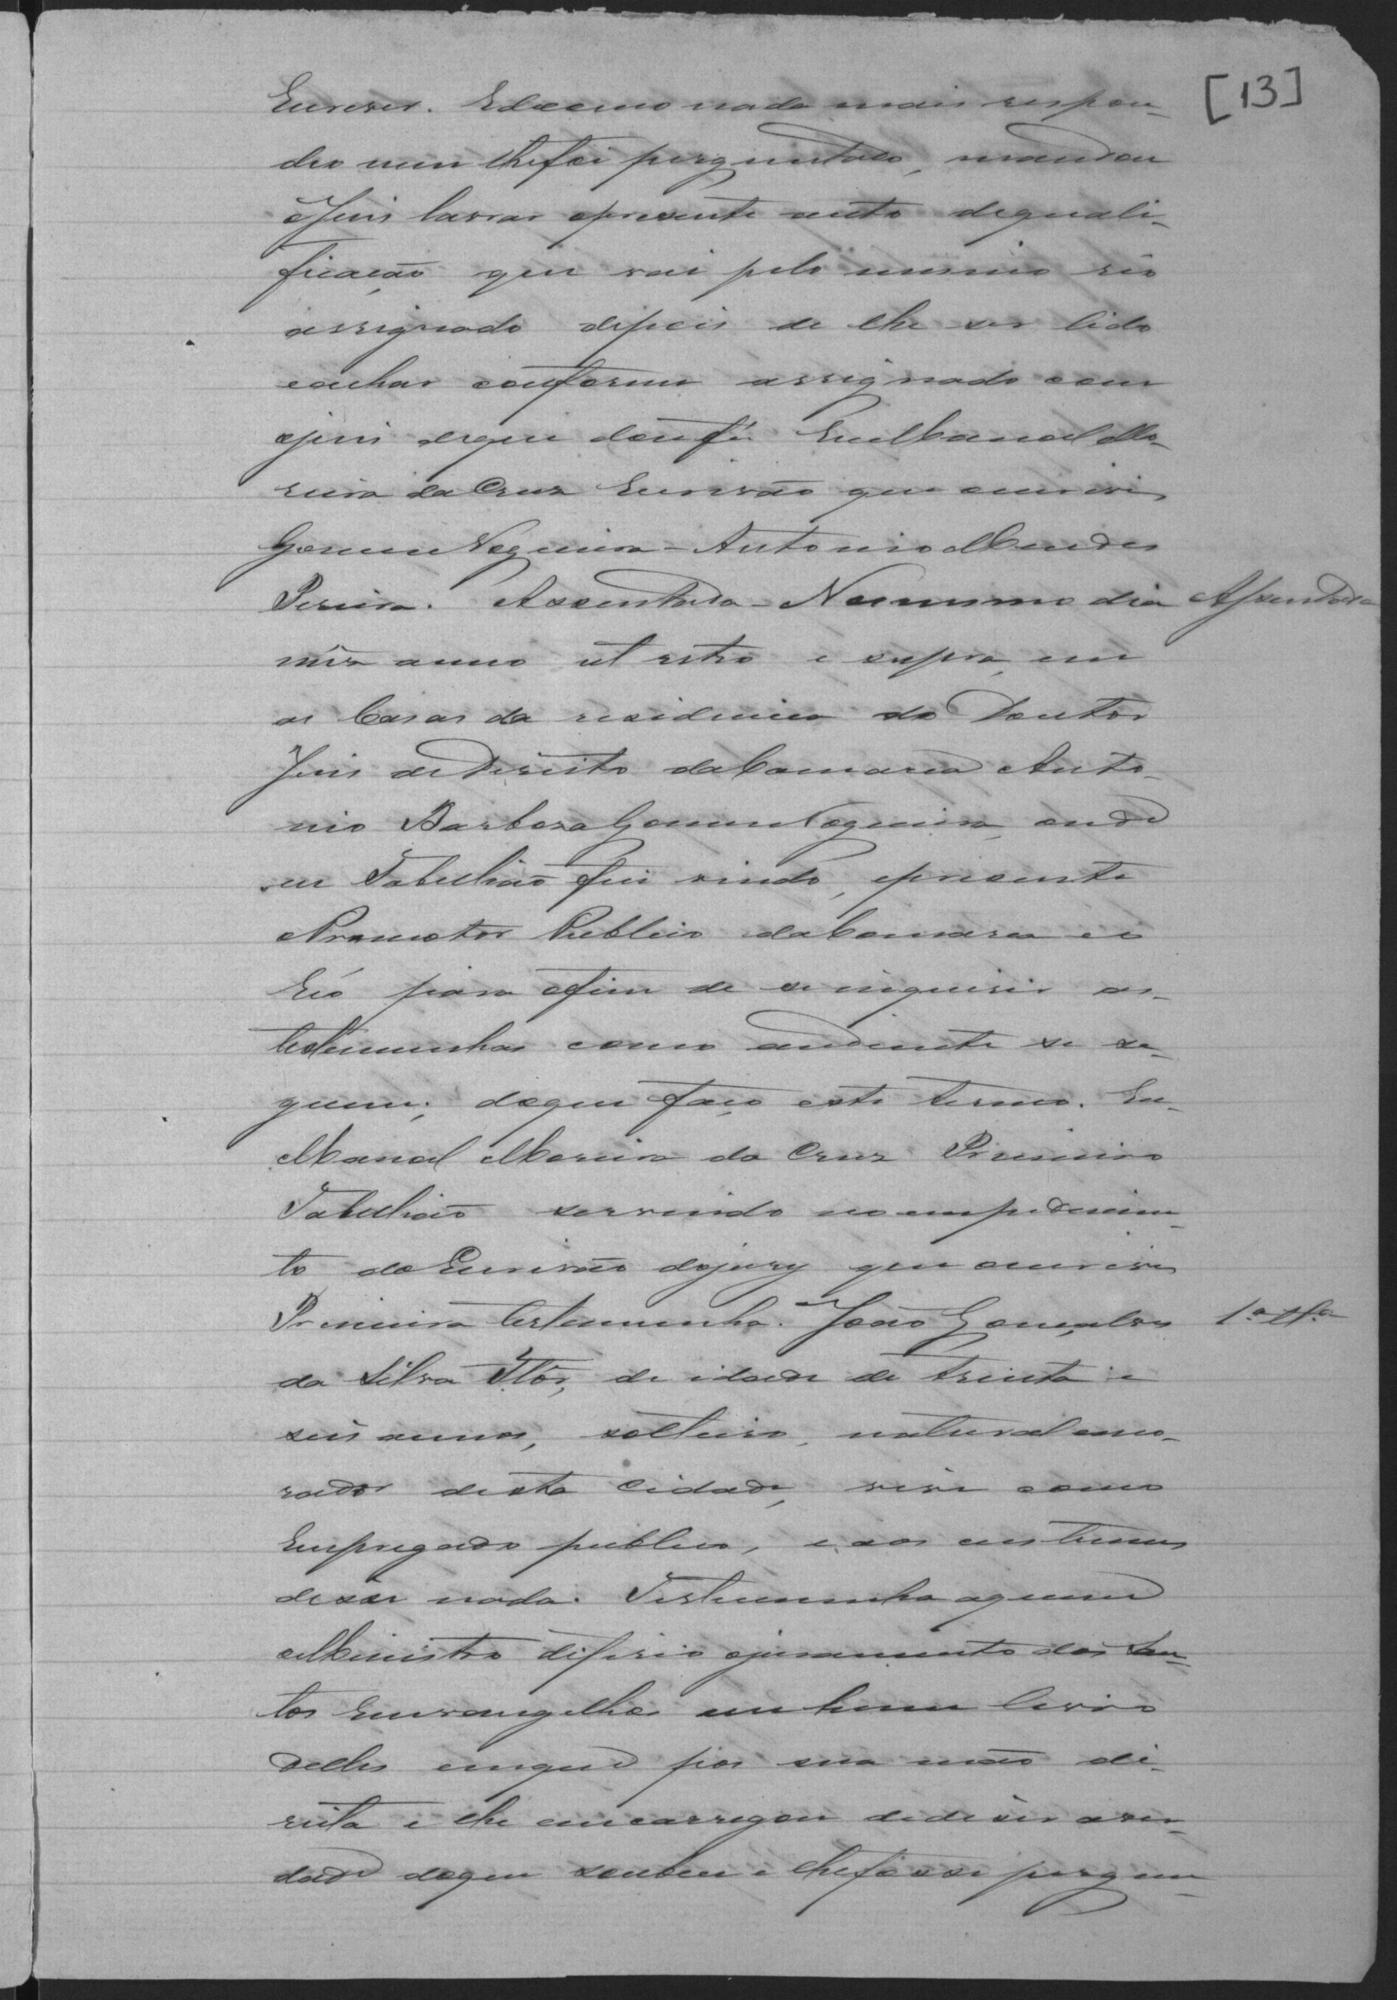 [13]
Escrever. E como nada mais respon-
deo nem lhe foi perguntado, mandou
o Juis lavrar o presente auto de quali-
ficação que vai pelo mesmo réo
assignado depois de lhe ser lido
e achar conforme assignado com
o juis do que dou fé. Eu Manoel Mo-
reira da Cruz Escrivão que escrevi
Gomes Nogueira - Antonio Mendes
Pereira. Assentada - No mesmo dia
Assentada
mês anno ut retro e supra, em
as Casas da residencia do Doutor
Juis de Direito da Comarca Anto-
nio Barbosa Gomes Nogueira, onde
eu Tabellião fui vindo, o presente
Promotor Publico da Comarca e o
Réo para o fim de se inquirir as
testemunhas como adiente se se-
guem; do que faço este termo. Eu
Manoel Moreira da Cruz Primeiro
Tabellião servindo no empedimen-
to do Escrivão do jury que escrevi
Primeira testemunha. João Gonçalves
1.ª Tª
da Silva Flôr, de idade de trinta e
seis annos, solteiro, natural e mo-
rador desta Cidade, vive como
Empregado publico, e aos custumes
disse nada. Testemunha a quem o
Ministro diferio o juramento dos San-
tos Euvangelhos em hum livro
delles em que pôs sua mão di-
reita e lhe encarregou de diser a ver-
dade do que soubesse e lhe fosse pergun-